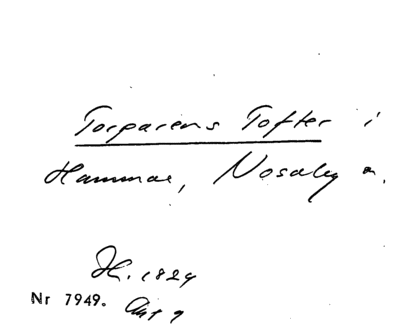 Torparens Tofter i
Hammar, Nosaby s.
H. 1824
Nr 7949.